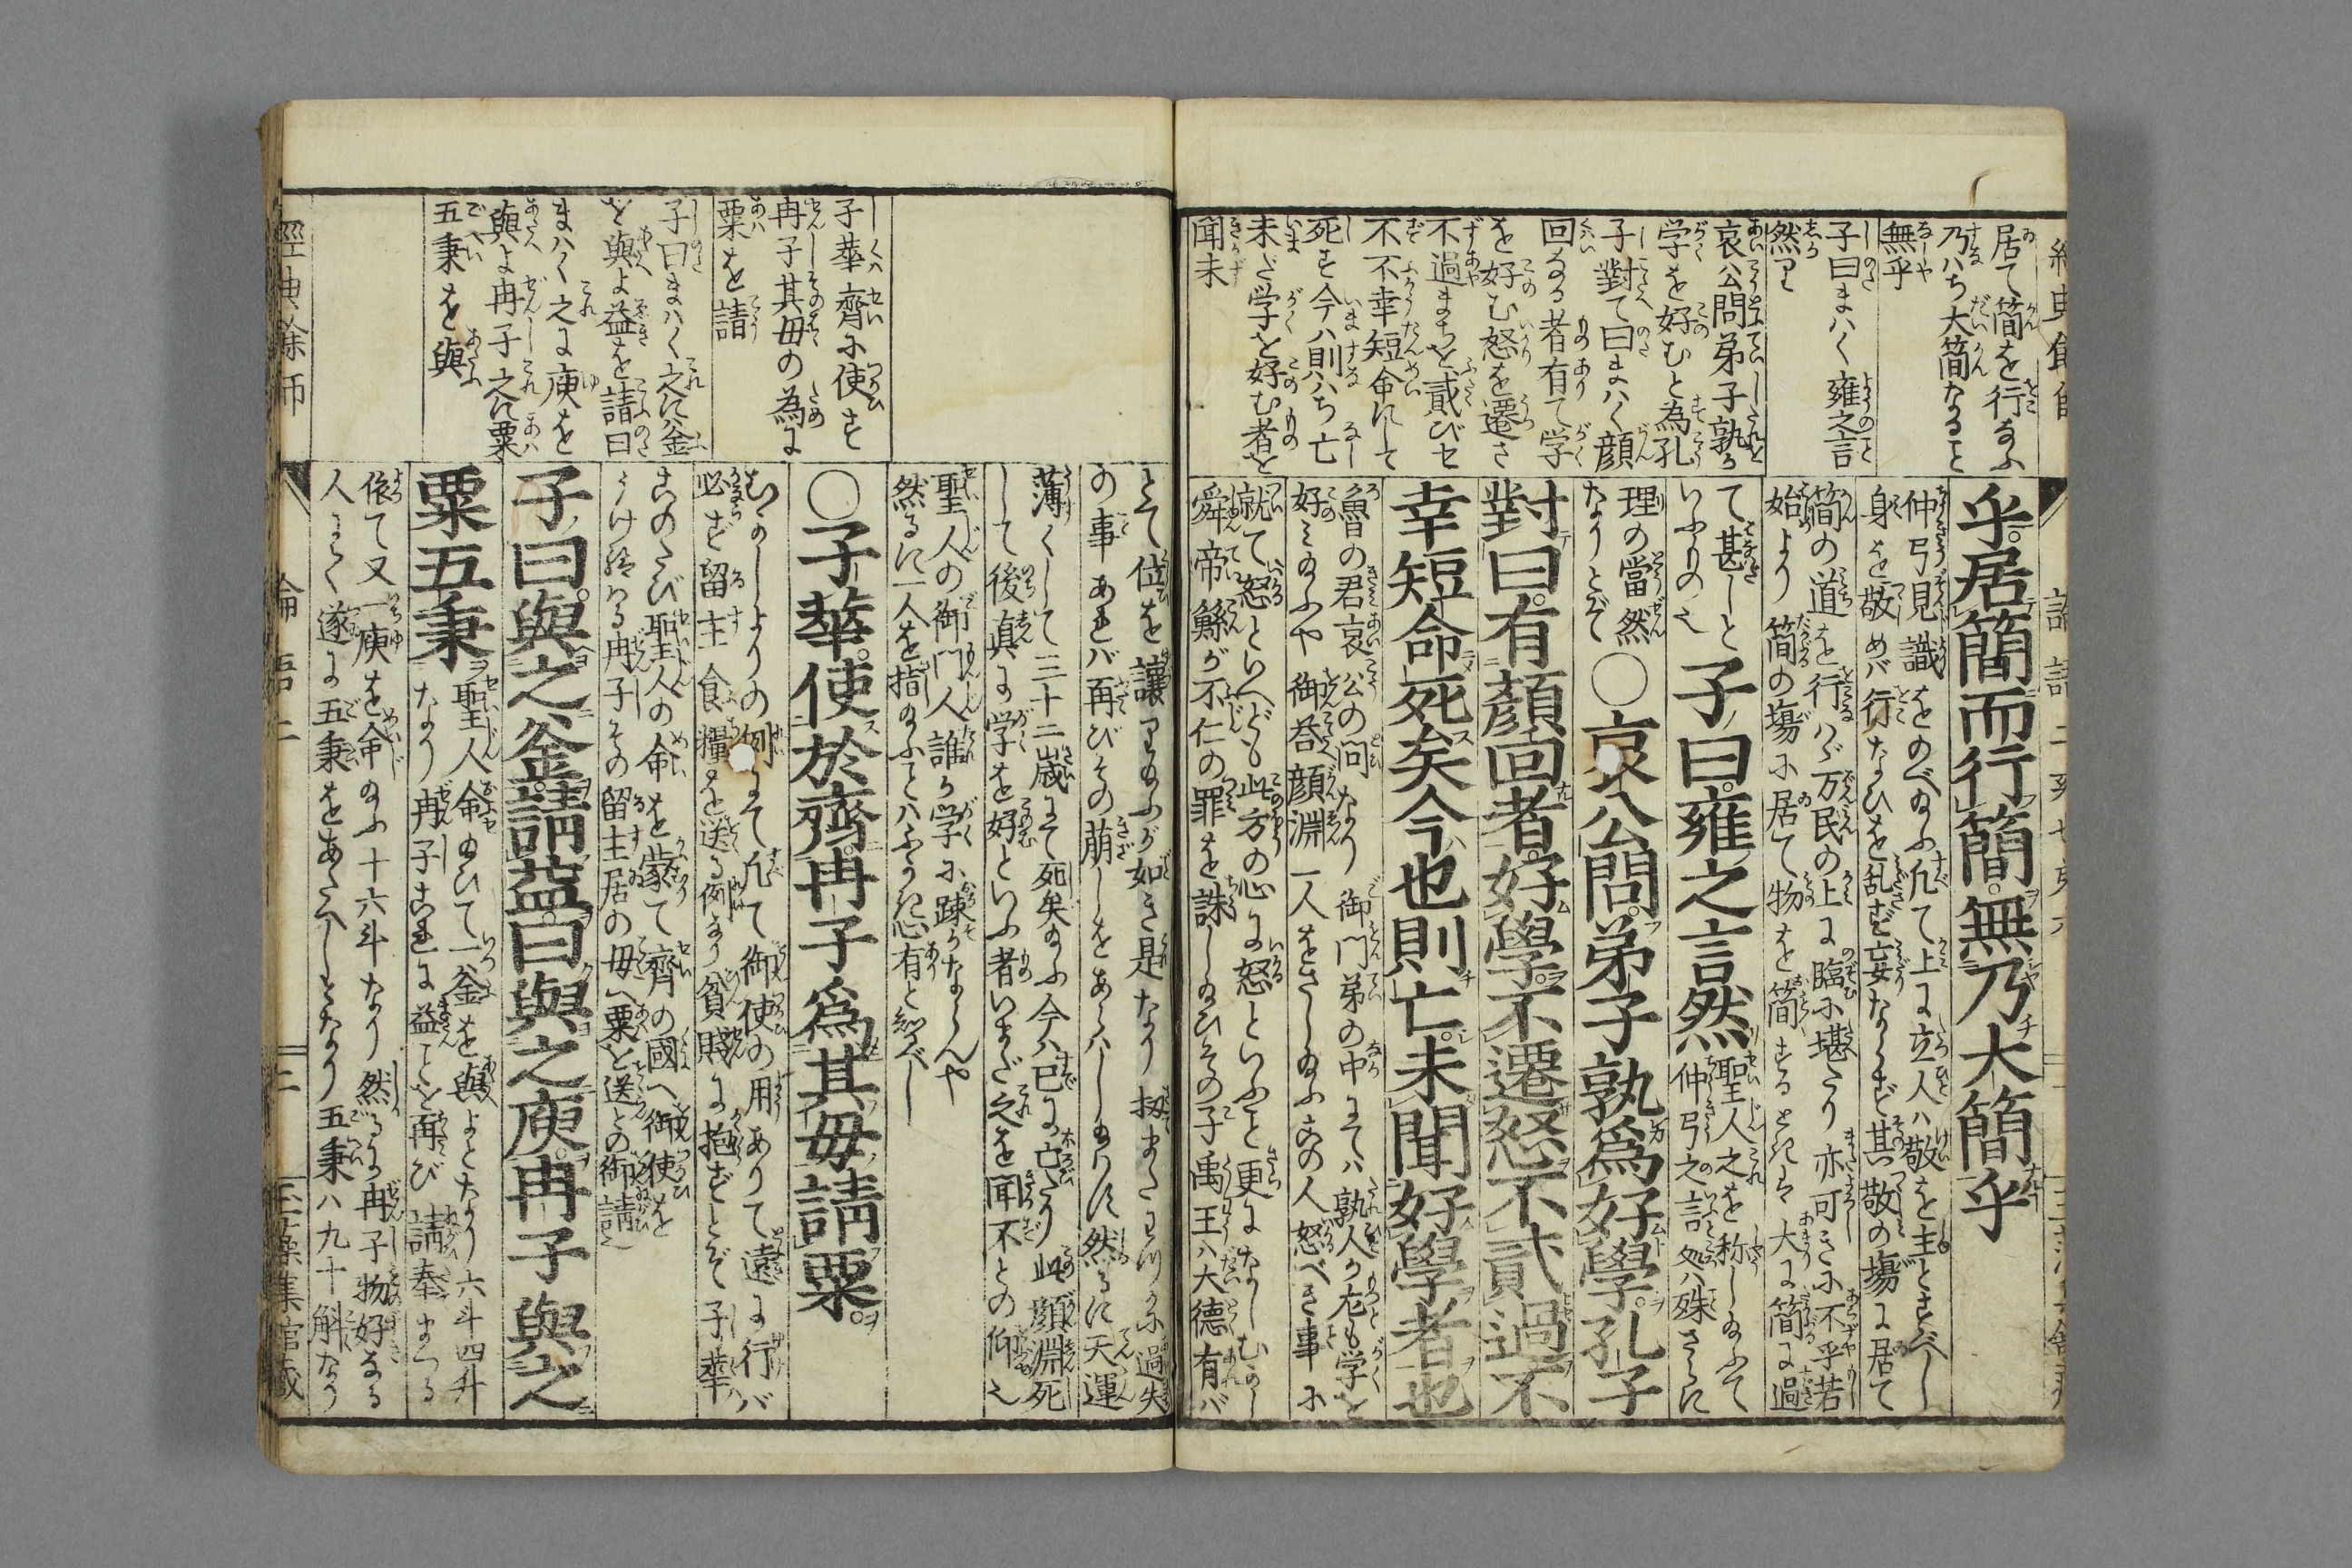 居て簡を行ふ
乃ハち大簡なること
無乎
子曰まハく雍之言
然り
哀公問弟子孰か
学を好むと為孔
子對て曰まハく顔
回なる者有て学
を好む怒を遷さ
不過まちを貳びせ
不不幸短命にして
死す今ハ則ハち亡
未だ学を好む者を
聞未
乎居簡而行簡無乃大簡乎
仲弓見識をのべ給ふ凢て上に立人ハ敬を主とすべし
身を敬めバ行なひを乱さず妄ならず其敬の場に居て
簡の道を行ハヾ万民の上に臨に堪たり亦可きに不乎若
始より簡の場に居て物を簡するときハ大に簡に過
て甚しと子曰雍之言然聖人之を称し給ふて
いふの之仲弓之言処ハ殊さらに
理の當然
なりとぞ〇哀公問弟子孰爲好學孔子
對曰有顔回者好學不遷怒不貳過不
幸短命死矣今也則亡未聞好學者也
魯の君哀公の問なり御門弟の中にてハ孰人か尤も学を
好ミ給ふや御荅顔淵一人をさし給ふ古の人怒べき事に
就て怒といへども此方の心に怒といふと更になしむかし
舜帝鯀が不仁の罪を誅し給ひその子禹王ハ大徳有バ
子華齊に使す
冉子其毋の為に
粟を請
子曰まハく之に釜
を與よ益を請曰
まハく之に庾を
與よ冉子之に粟
五秉を與
とて位を讓り給ふが如き是なり扨またわづかに過失
の事あれバ再びその萠しをあらハし給ハず然るに天運
薄くして三十二歳にて死矣給ふ今ハ已に亡たり此顔淵死
して後真に学を好といふ者いまだ之を聞不との仰之
聖人の御門人誰か学に疎かならんや
然るに一人を指給ふとハふかき心有と知べし
〇子華使於齊冉子爲其毋請粟
むかしよりの例にて凢て御使の用ありて遠に行バ
必ず留主食糧を送る例なり貧賤に抱ずとぞ子華ハ
古のたび聖人の命を蒙て齊の國へ御使を
うけ給ハる冉子その留主居の毋へ粟を送との御請之
子曰與之釜請益曰與之庾冉子與之
粟五秉聖人命給ひて一釜を與よとなり六斗四升
なり冉子これに益ことを再び請奉まつる
依て又一庾を命給ふ十六斗なり然るに冉子物好なる
人にて遂に五秉をあたへしとなり五秉ハ九十斛なり
經典餘師
論吾二
二